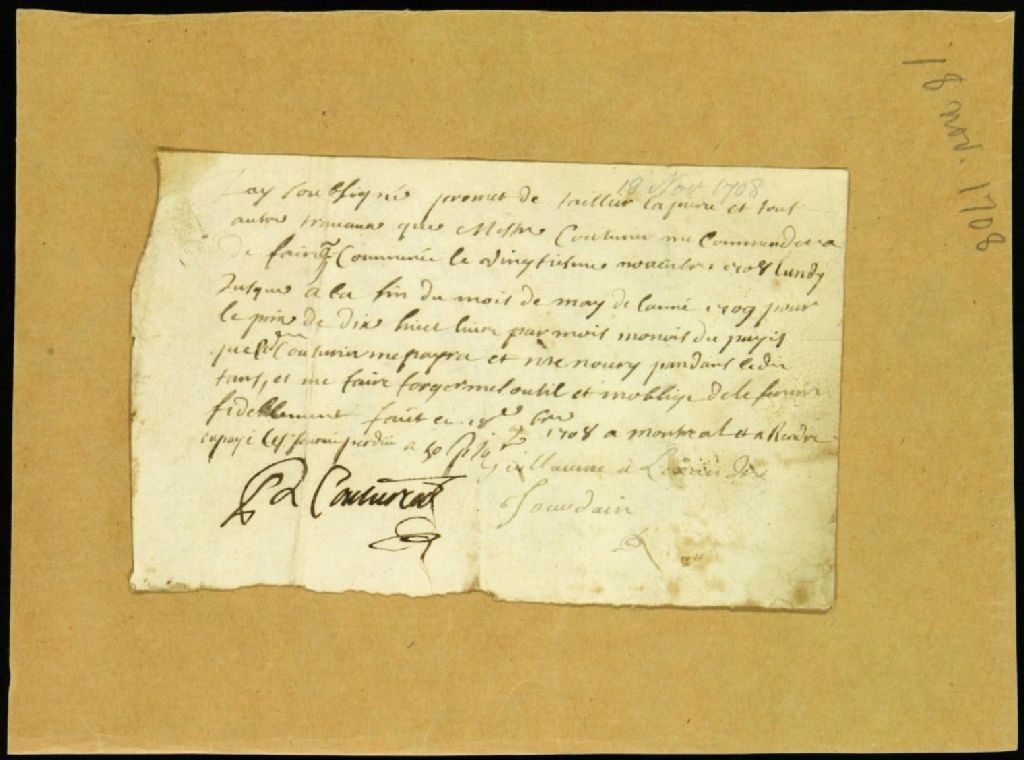 18 Nov 1708
Jay soubsigné promet de tailler la piere et tout
autre travaux que Mestre Couturier me Commandera
de faire Commencé le vingtiesme novembre 1708 lundy
Jusque a la fin du mois de may de lanné 1709 pour
le prix de dix huit livre par mois monoie du payis
que Couturier me payra et me noury pandans ledit
tans, et me faire forger mes outil et moblige de le servir
fidellement fait ce 18 bre 1708 a montreal
a 50
Guillaume
Jourdain
P Couturier
18 nov. 1708